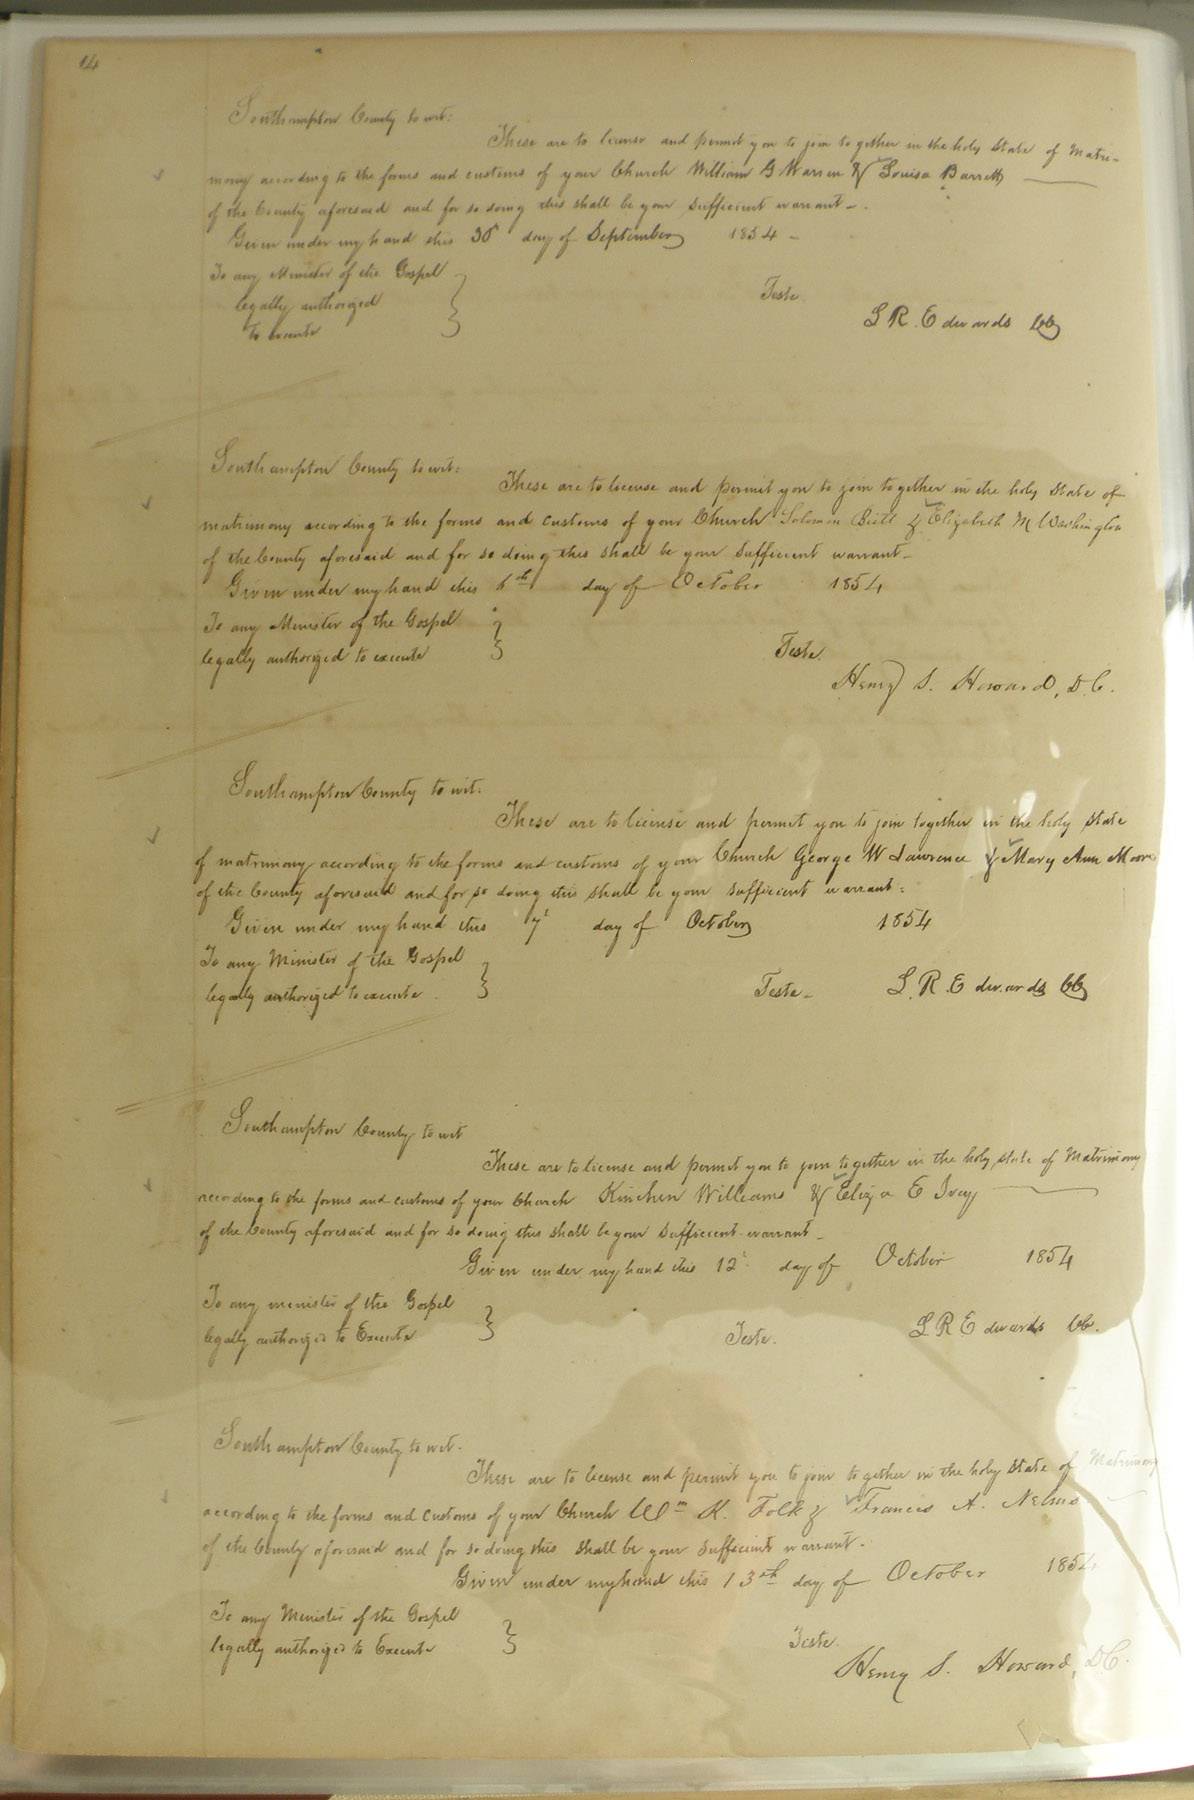 14
Southampton County to wit:
These are to license and permit you to join together in the holy State of Matri-
mony according to the forms and customs of your Church William G Warren & Louisa Barrett
of the County aforesaid and for so doing this shall be your sufficient warrant -.
Given under my hand this 30 day of September 1854 -
To any Minister of the Gospel
legally authorized
to execute
Teste
L R. Edwards CC
Southampton County to wit:
These are to license and permit you to join together in the holy State of
matrimony according to the forms and customs of your Church Solomon & Elizabeth M Washington
of the County aforesaid and for so doing this shall be your Sufficient warrant -
Given under my hand this 6th day of October 1854
To any Minister of the Gospel
legally authorized to execute
Teste.
Henry S. Howard, D.C.
Southampton County to wit.
These are to license and permit you to join together in the holy State
of matrimony according to the forms and customs of your Church George W Lawrence & Mary Ann Moore
of the County aforesaid and for so doing this shall be your sufficient warrant:
Given under my hand this 7t day of October 1854
To any Minister of the Gospel
legally authorized to execute
Teste - L. R. Edwards CC
Southampton County to wit
These are to license and permit you to join together in the holy state of Matrimony
according to the forms and customs of your Church Kinchen Williams & Eliza E Ivey
of the County aforesaid and for so doing this shall be your Sufficient warrant -
Given under my hand this 12t day of October 1854
To any minister of the Gospel
legally authorized to Execute
Teste. L R Edwards CC.
Southampton County to wit.
These are to license and permit you to join together in the holy State of Matrimony
according to the forms and customs of your Church Wm K. Folk & Francis A. Nelms
of the County aforesaid and for so doing this shall be your Sufficient warrant.
Given under my hand this 13th day of October 1854
To any Minister of the Gospel
legally authorized to Execute
Teste.
Henry S. Howard, DC.